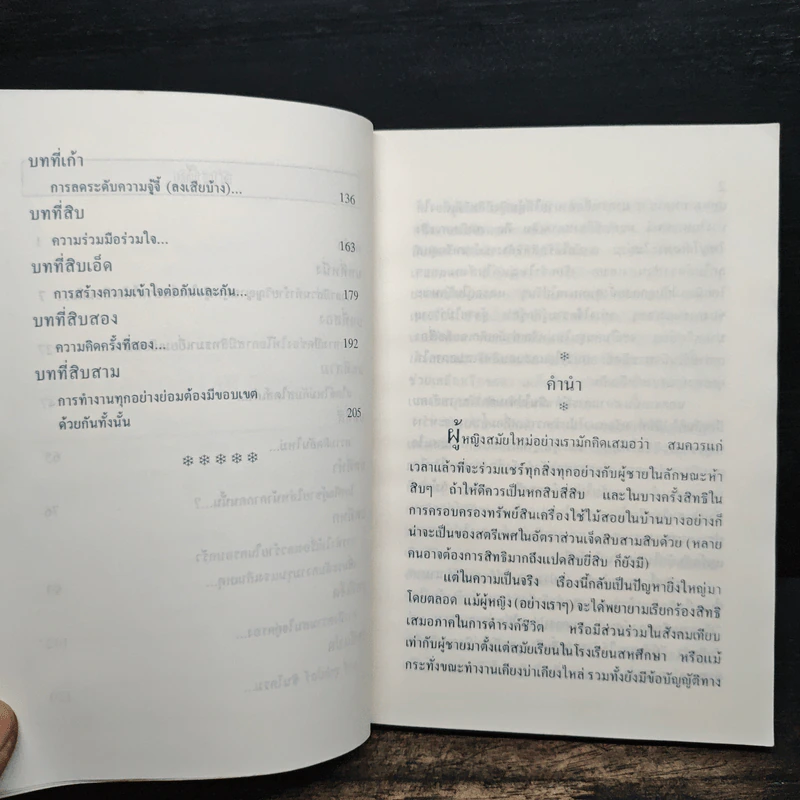 บทที่เก้า
การลดระดับความจู้จี้ (ลงเสียบ้าง)... 136
บทที่สิบ
ความร่วมมือร่วมใจ... 163
บทที่สิบเอ็ด
การสร้างความเข้าใจต่อกันและกัน... 179
บทที่สิบสอง
ความคิดครั้งที่สอง... 192
บทที่สิบสาม
การทำงานทุกอย่างย่อมต้องมีขอบเขต
ด้วยกันทั้งนั้น 205
คำนำ
ผู้หญิงสมัยใหม่อย่างเรามักคิดเสมอว่า สมควรแก่
เวลาแล้วที่จะร่วมแชร์ทุกสิ่งทุกอย่างกับผู้ชายในลักษณะห้า
สิบๆ ถ้าให้ดีควรเป็นหกสิบสี่สิบ และในบางครั้งสิทธิใน
การครอบครองทรัพย์สินเครื่องใช้ไม้สอยในบ้านบางอย่างก็
น่าจะเป็นของสตรีเพศในอัตราส่วนเจ็ดสิบสามสิบด้วย (หลาย
คนอาจต้องการสิทธิมากถึงแปดสิบยี่สิบ ก็ยังมี)
แต่ในความเป็นจริง เรื่องนี้กลับเป็นปัญหายิ่งใหญ่มา
โดยตลอด แม้ผู้หญิง (อย่างเราๆ) จะได้พยายามเรียกร้องสิทธิ
เสมอภาคในการดำรงค์ชีวิต หรือมีส่วนร่วมในสังคมเทียบ
เท่ากับผู้ชายมาตั้งแต่สมัยเรียนในโรงเรียนสหศึกษา หรือแม้
กระทั่งขณะทำงานเคียงบ่าเคียงไหล่ รวมทั้งยังมีข้อบัญญัติทาง